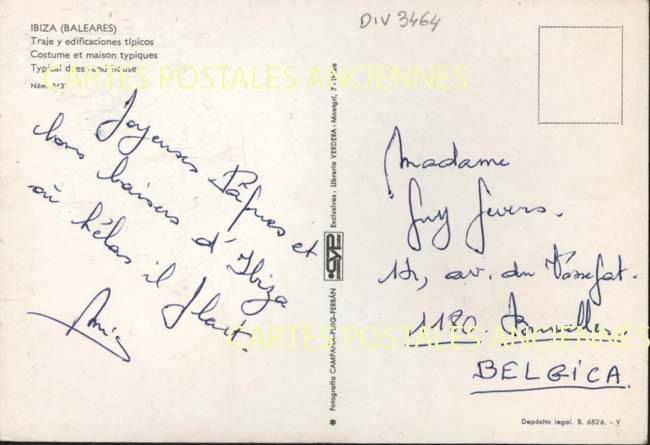 IBIZA (BALEARES)
Traje y edificaciones típicos
Costume et maison typiques
Typical dress and house
Núm.
DIV 3464
CARTES POSTALES ANCIENNES
Joyeuses Pâques et
bons baisers d'Ibiza
où hélas il flait.
Exclusivas - Librería VERDERA - Montgrí, 7 - Ibiza
CYP
* Fotografía CAMPAÑÁ PUIG-FERRÁN
Madame
Guy Gevers.
av. du
1180 Bruxelles
BELGICA.
CARTES POSTALES ANCIENNES
Depósito legal. B. 6826. - V